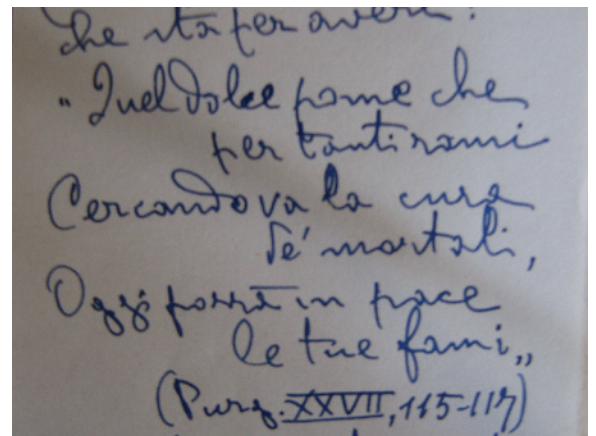 che sta per avere:
"Quel dolce pome che
per tanti rami
Cercando va la cura
de' mortali,
Oggi porrà in pace
le tue fami,,
(Purg. XXVII, 115-117)